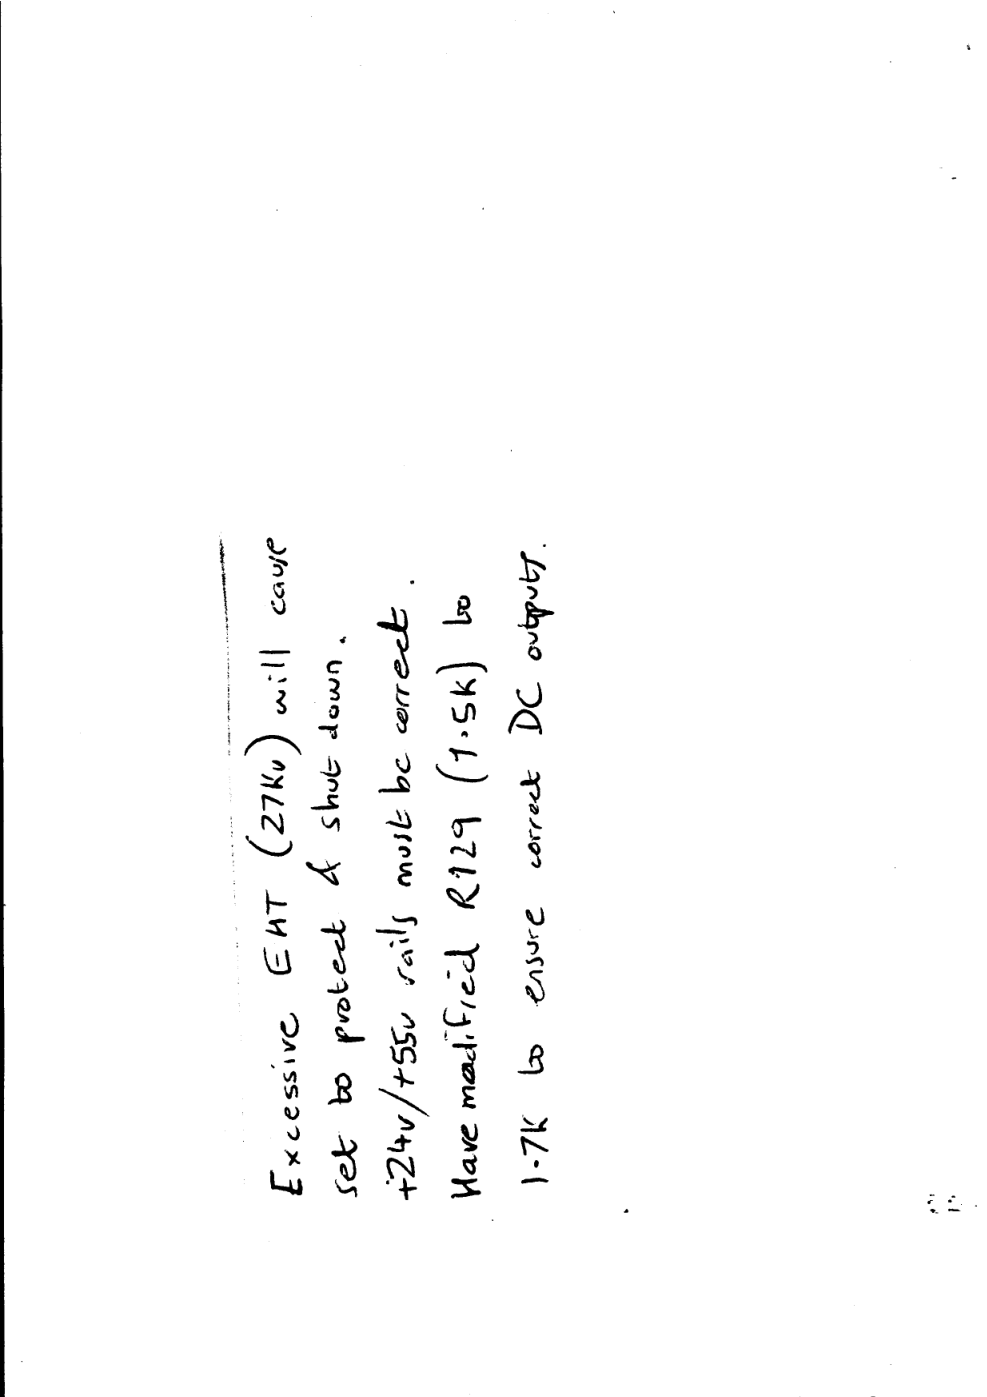 Excessive EHT (27Kv) will cause
set to protect & shut down.
+24v/+55v rails must be correct.
Have modified R129 (1.5K) to
1.7K to ensure correct DC outputs.